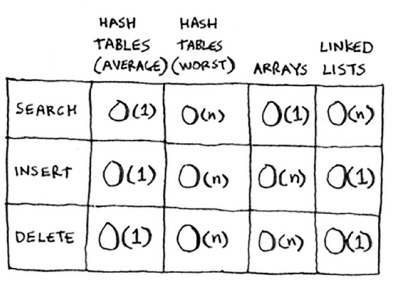 HASH TABLES (AVERAGE) HASH TABLES (WORST) ARRAYS LINKED LISTS
SEARCH O(1) O(n) O(1) O(n)
INSERT O(1) O(n) O(n) O(1)
DELETE O(1) O(n) O(n) O(1)